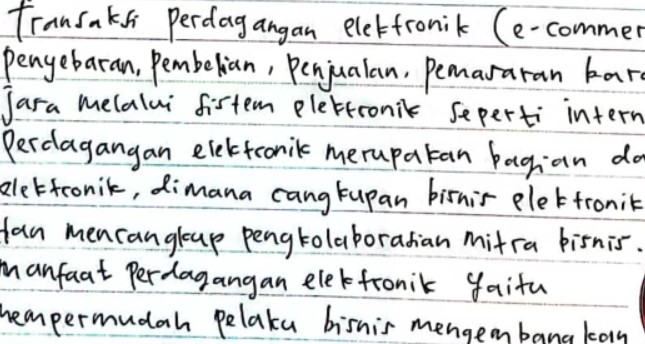 Transaksi perdagangan elektronik (e-commer
penyebaran, pembelian, penjualan, pemasaran bara
jasa melalui sistem elektronik seperti intern
Perdagangan elektronik merupakan bagian da
elektronik, dimana cangkupan bisnis elektronik
dan mencangkup pengkolaborasian mitra bisnis.
manfaat perdagangan elektronik yaitu
mempermudah pelaku bisnis mengembangkan